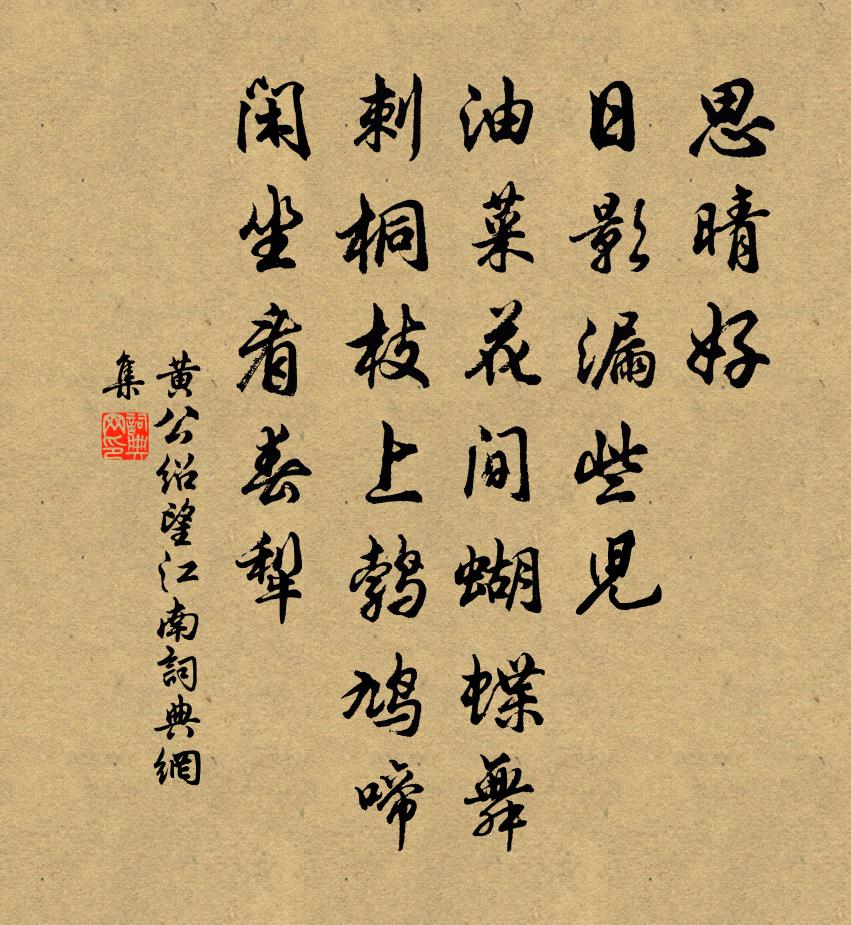 思晴好
日影漏些兒
油菜花間蝴蝶舞
刺桐枝上鹁鳩啼
閑坐看春犁
黄公紹望江南詞典網
集
詞典網印